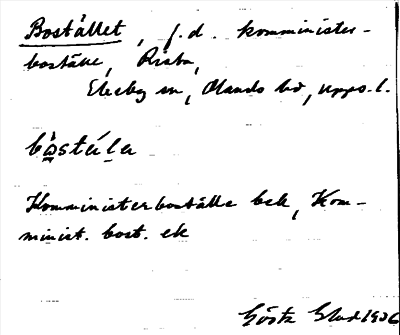 Bostället, f.d. komminister-
boställe, Rista,
Ekeby sn, Olands hd, Upps.l.
bòstá̀lα
Komministerboställe bek, Kom-
minist. bost. ek
Gösta Elvd 1936